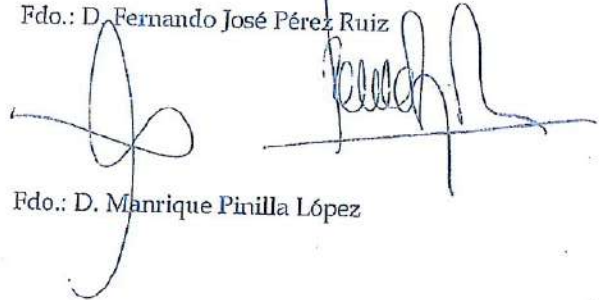 Fdo.: D. Fernando José Pérez Ruiz
Fdo.: D. Manrique Pinilla López